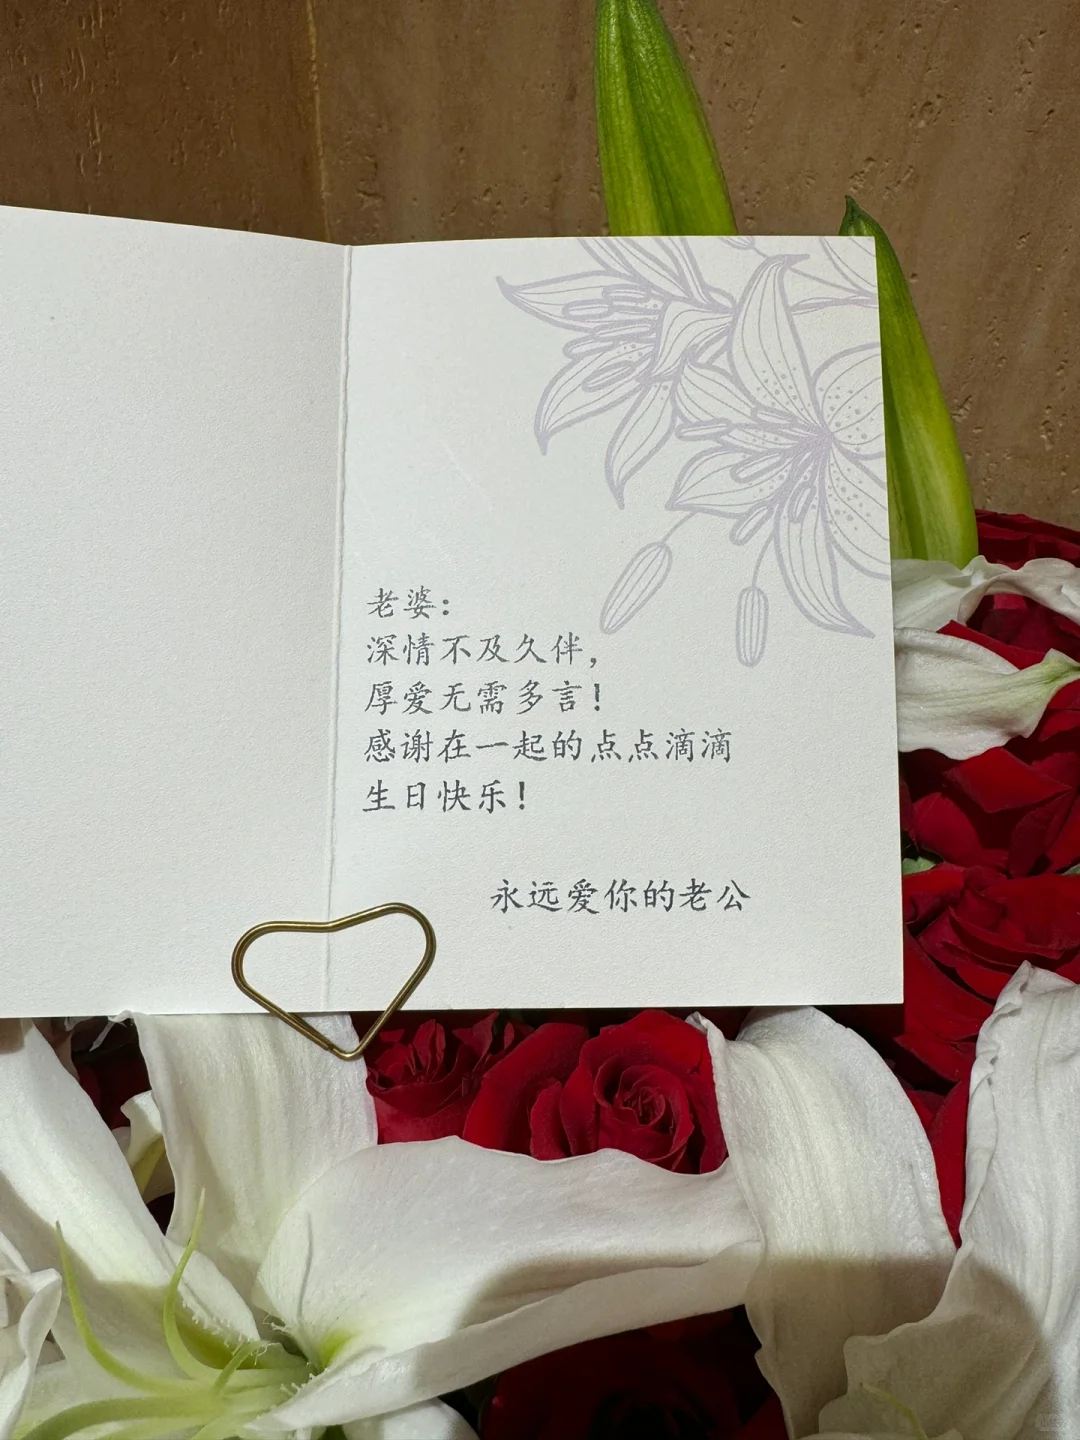 老婆：
深情不及久伴，
厚爱无需多言！
感谢在一起的点点滴滴
生日快乐！
永远爱你的老公